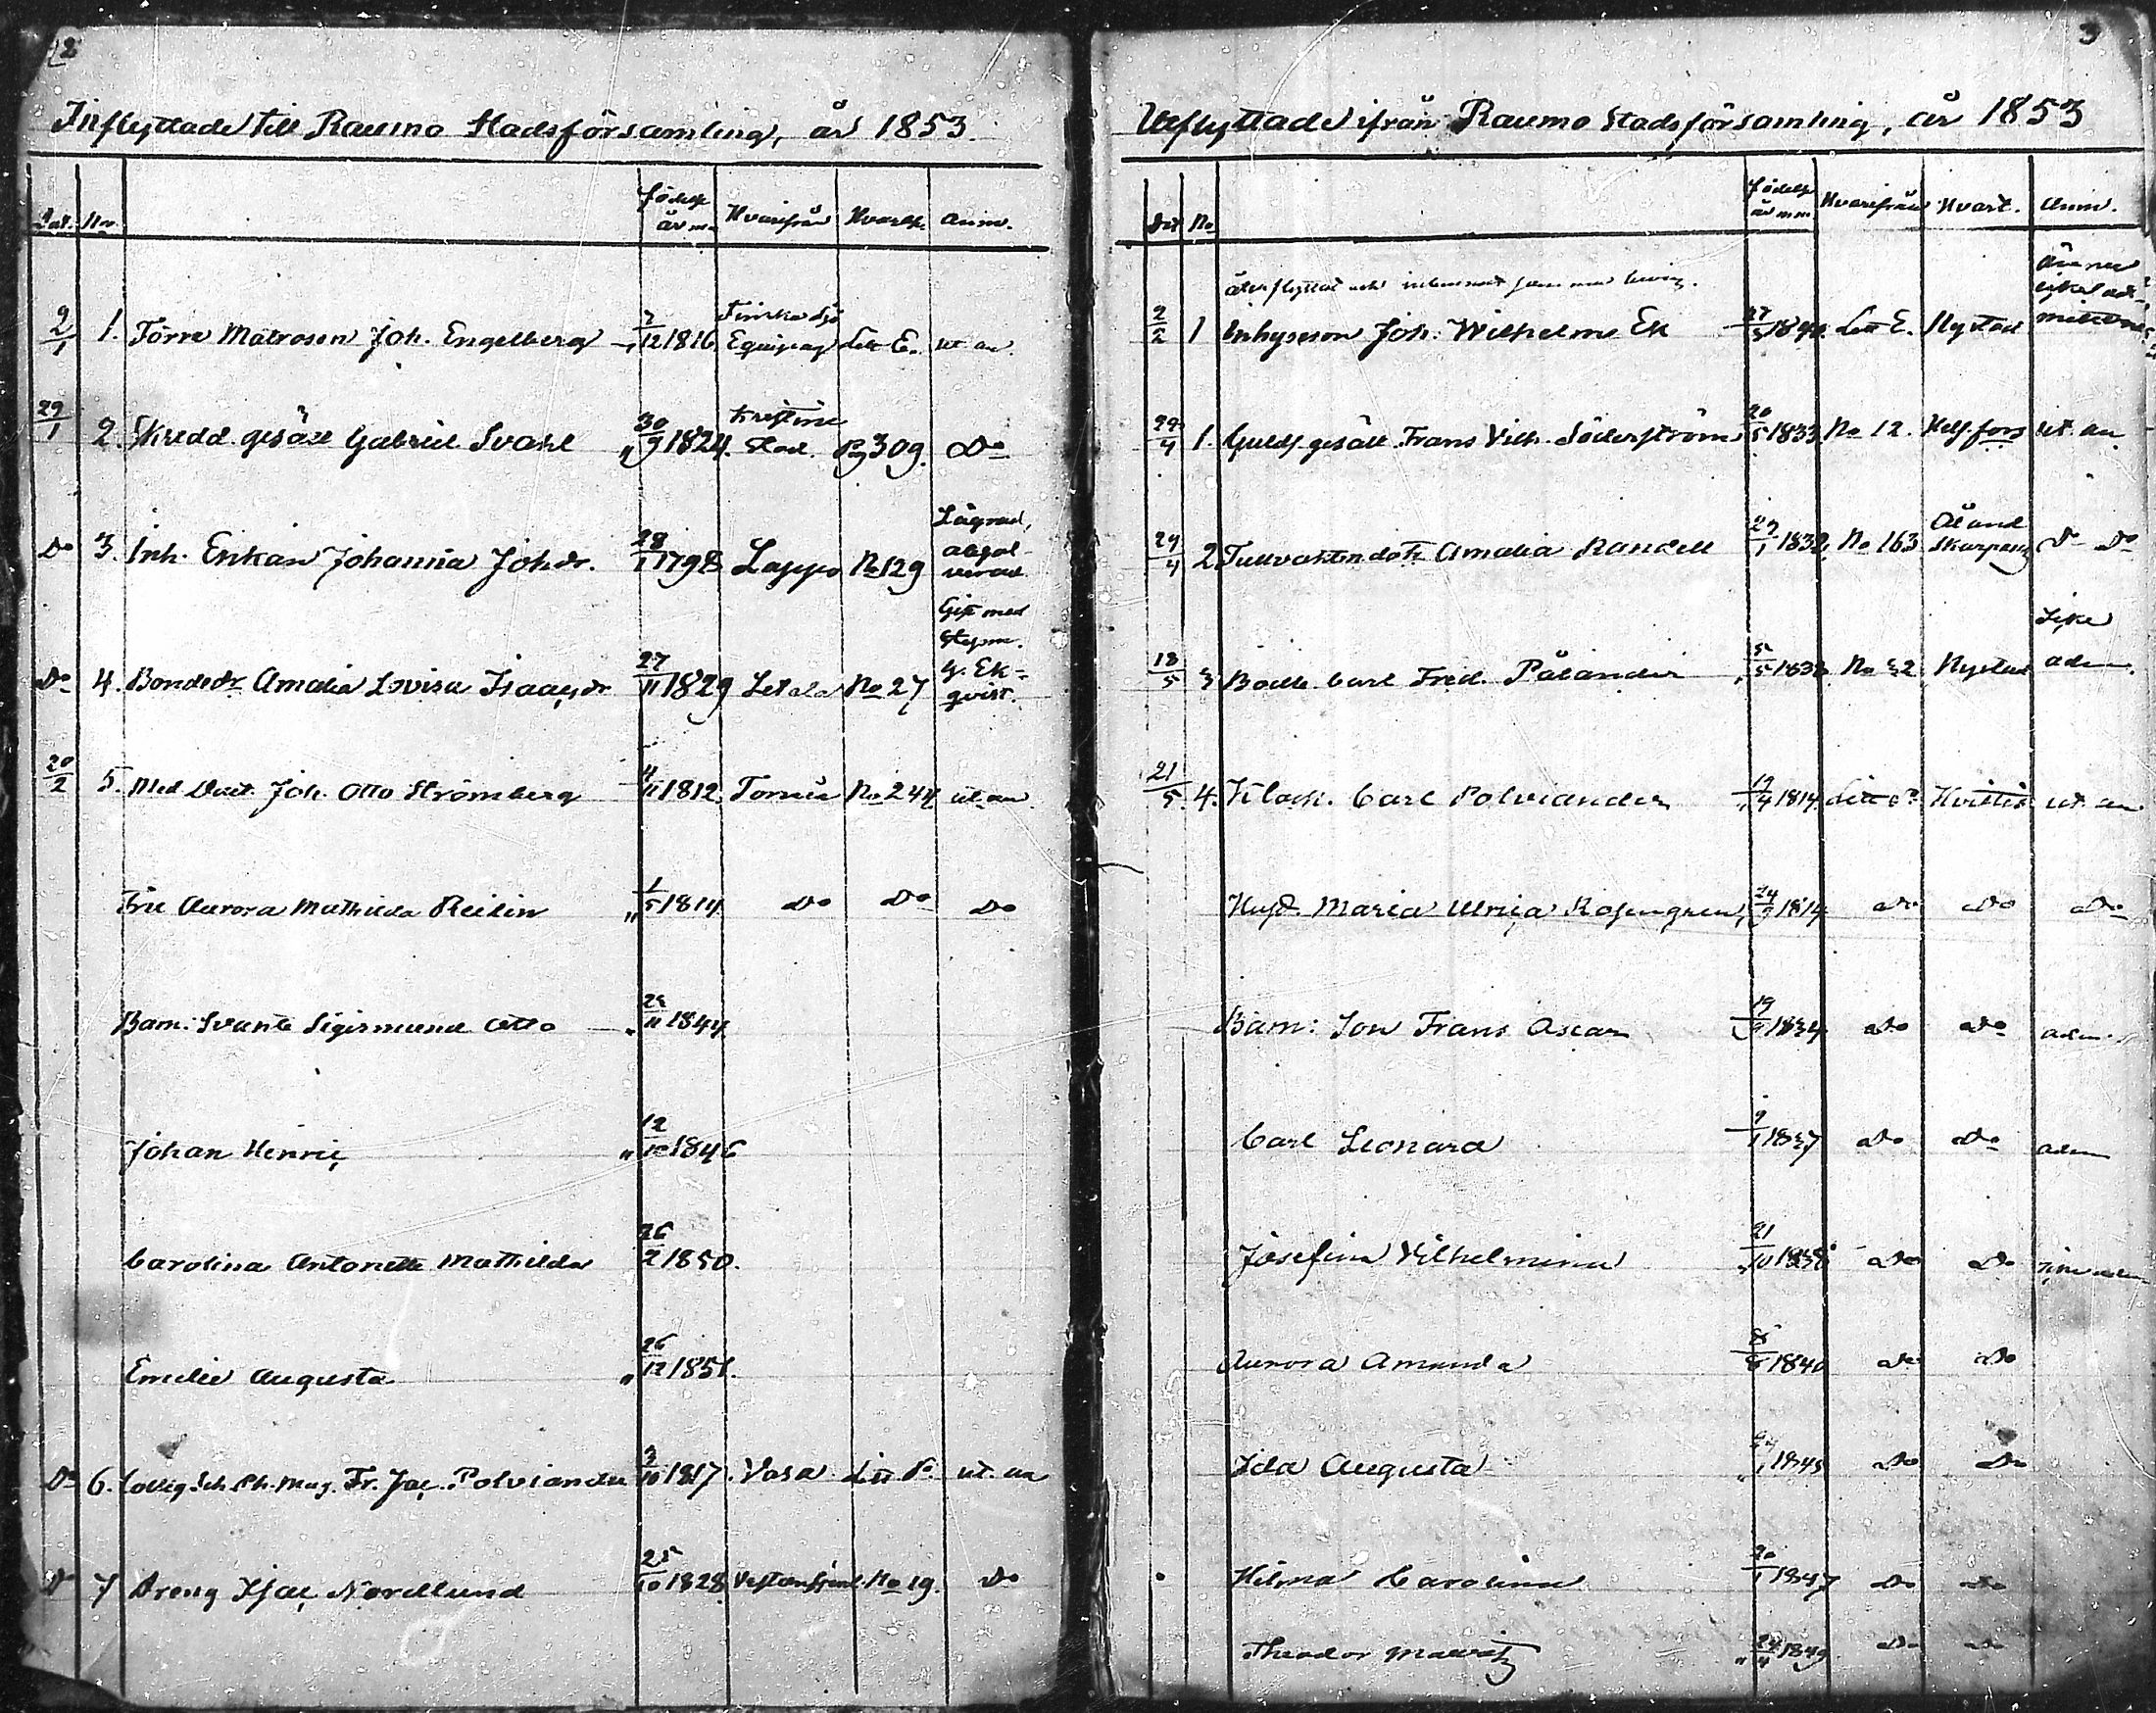 2
Inflyttade till Raumo Stadsförsamling, år 1853.
Dat. No. födelse år Hvarifrån Anm.
9/1 1. Förre Matrosen Joh. Engelberg 7/12 1816 Finska Sjö Equipag Litt E. ut an.
29/1 2. Skredd. gesäll Gabriel Svahl 30/9 1824. Kristine Stad. Pag 309. Do
Do 3. Inh. Enkan Johanna Johdr. 28/1 1798 Lappo No 129 Lägrad, absolverad.
Do 4. Bondedr Amalia Lovisa Isaacsdr 27/11 1829 Letala No 27 Gift med G. Ekqvist.
20/2 5. Med. Doct. Joh. Otto Strömberg 4/11 1812. Torneå No 244 ut an.
Fru Aurora Mathilda Reilin 1/5 1814 Do Do Do
Barn: Svante Sigismund Otto 1844
Johan Henric 12/10 1846
Carolina Antonette Mathilda 26/2 1850.
Emilie Augusta 26/12 1851.
Do 6. Colleg. Sch. Ph. Mag. Fr. Jac. Polviander 3/10 1817. Vasa Litt ut. an
Do 7 Dreng Isac Nordlund 25/10 1828 No 19. Do
3
Utflyttade ifrån Raumo Stadsförsamling, år 1853
Dat No födelse år Hvarifrån Hvart. Anm.
1 Inhyseson Joh. Wilhelm Ek 27/3 Litt E. Nystad
29/4 1. Gulds. gesäll Frans Vilh. Söderström 20/5 1833. No 12. Helsfors ut. an
29/4 2. Tullvakten dotr Amalia Randell 1832. No 163 Åland Skarpans Do Do
18/5 3 Carl Fred. Pålander No Nystad adm.
21/5. 4. Klock. Carl Polviander 1814. Litt Hvittis ut an
Hust. Maria Ulrica Rosengren 24/9 1814 Do Do Do
Barn: Son Frans Oscar 19/9 1834 Do Do adm.
Carl Leonard 9/1 1837 Do Do adm
Josefina Vilhelmina 21/10 1838 Do Do
Aurora Amanda 1840 Do Do
Ida Augusta Do Do
Hilma Carolina 20/1 1847 Do Do
Theodor Mauritz 1849 Do Do